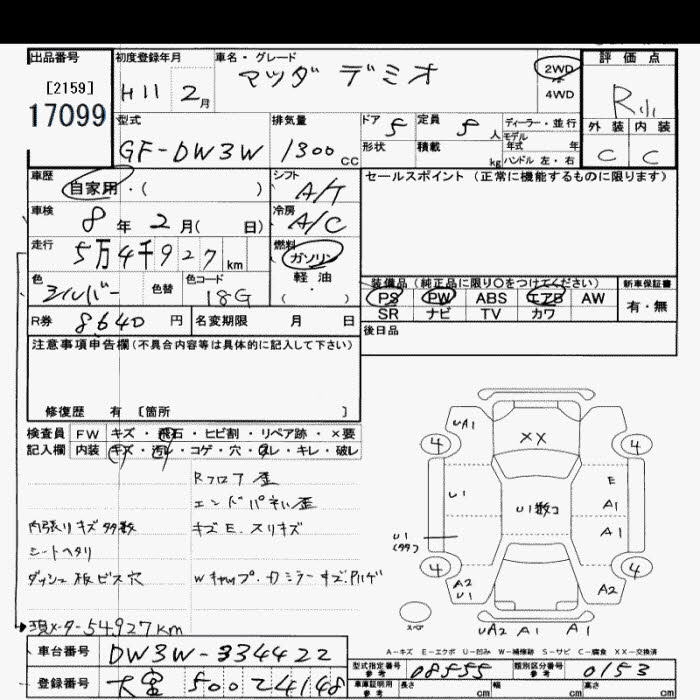 出品番号 初度登録年月 車名・グレード 評価点
[2159] H11 2月 マツダ デミオ 2WD
・
4WD R
17099 外装 内装
型式 排気量 ドア 5 定員 5人 ディーラー・並行 C C
GF-DW3W 1300cc 形状 積載 kg モデル年式 年
ハンドル 左・右
車歴 シフト セールスポイント (正常に機能するものに限ります)
自家用・( ) A/T
車検 8年2月( 日) 冷房 A/C
走行 5万4千927km 燃料 ガソリン
軽油
( )
色 シルバー 色替 色コード 18G
装備品 (純正品に限り○をつけてください) 新車保証書
PS PW ABS エアB AW 有・無
SR ナビ TV カワ
R券 8,640円 名変期限 月 日 後日品
注意事項申告欄(不具合内容等は具体的に記入して下さい)
修復歴 有 〔箇所 〕
検査員 FW キズ・飛石・ヒビ割・リペア跡・×要
記入欄 内装 キズ・汚レ・コゲ・穴・スレ・キレ・破レ
Rフロア歪
エンドパネル歪
内張りキズ多数 キズE.スリキズ
シートヘタリ
ダッシュ板ビス穴 Wキャップ・カミラーキズ.ハゲ
現メーター54,927km
車台番号 DW3W-334422
登録番号 大宮 500 24148
UA1 XX
4 4
U1 U1数コ E
A1
A1
U1
(タタ)
4 4
A2
U1 A2
スペア
UA2 A1 A1
A-キズ E-エクボ U-凹み W-補修跡 S-サビ C-腐食 XX-交換済
型式指定番号 参考 08555 類別区分番号 参考 0153
車庫証明用 参考 長さ cm 幅 cm 高さ cm